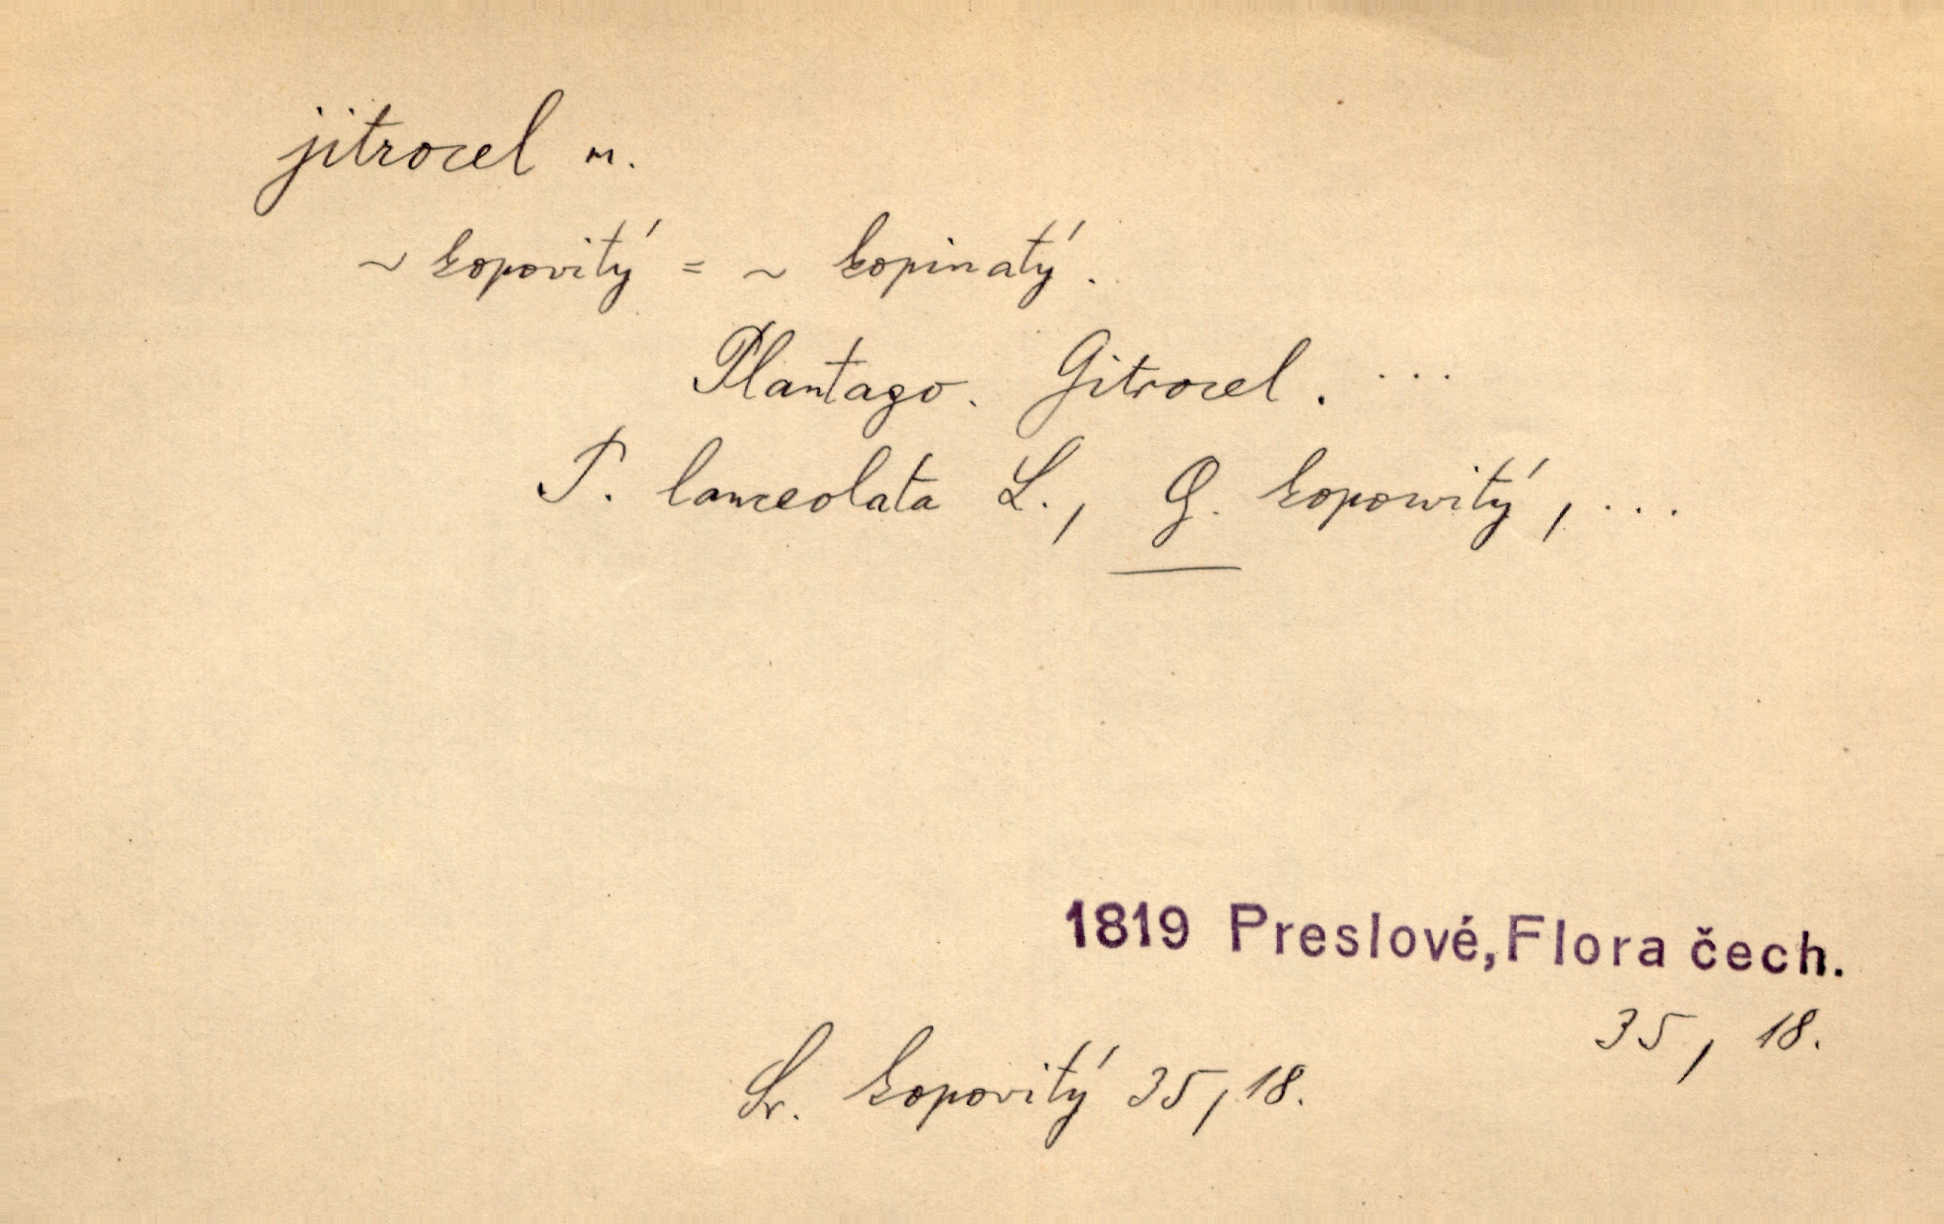 jitrocel m.
~ kopovitý = ~ kopinatý.
Plantago. Gitrocel. ...
P. lanceolata L., G. kopowitý, ...
1819 Preslové, Flora čech.
35, 18.
Sr. kopovitý 35, 18.